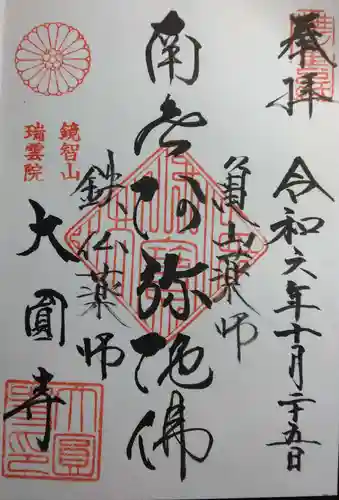 奉拝
令和六年十月二十五日
亀山薬師
南無阿弥陀佛
鉄仏薬師
鏡智山
瑞雲院
大圓寺